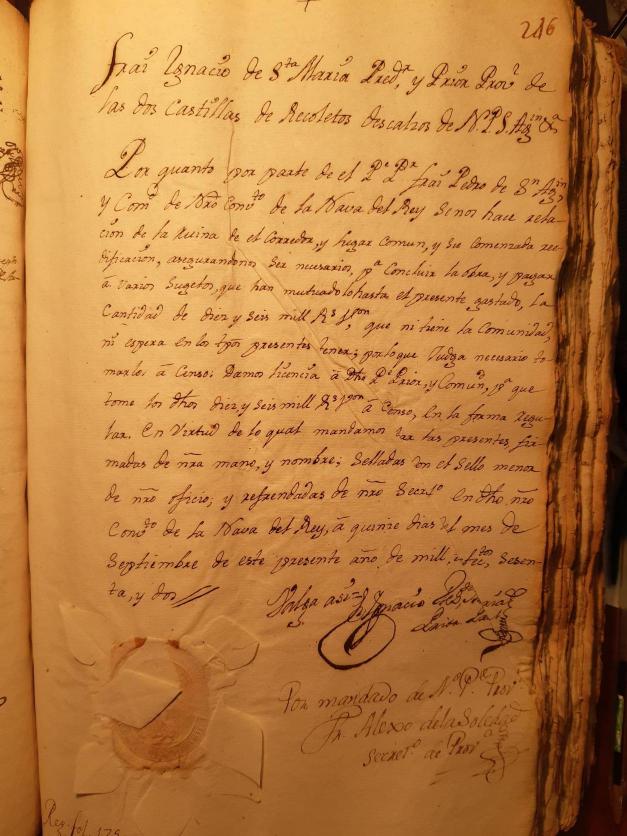 246
Fraí Ignacio de Sta María Predr, y Prior Provl de
las dos Castillas de Recoletos descalzos de N.P.S. Agin &a
Por quanto por parte de el Pe Pr fraí Pedro de Sn Agin
y Comd de Nro Convto de la Nava del Rey se nos hace rela-
ción de la ruina de el Corredor, y lugar comun, y su comenzada ree-
dificación, asegurandonos ser necesarios, pa Concluir la obra, y pagar
â varios Sugetos, que han mutuado lo hasta el presente gastado, la
Cantidad de diez y seis mill Rs Von, que ni tiene la Comunidad,
ni espera en los tpos presentes tener; por lo que Juzga necesario to-
marlos â Censo: Damos licencia â dho Pe Prior, y Comund, pa que
tome los dhos diez, y seis mill Rs Von â Censo, en la forma regu-
lar. En virtud de lo qual mandamos dar las presentes, fir-
madas de nra mano, y nombre; Selladas con el Sello menor
de nro oficio; y refrendadas de nro Secreto en dho nro
Convto de la Nava del Rey, â quinze dias del mes de
Septiembre de este presente año de mill, setectos, sesen-
ta, y dos //
Fr Ignacio de Sta María
Por mandado de N. Pe Provl
Fr. Alexo de la Soledad
Secreto de Prova
Reg. fol. 175